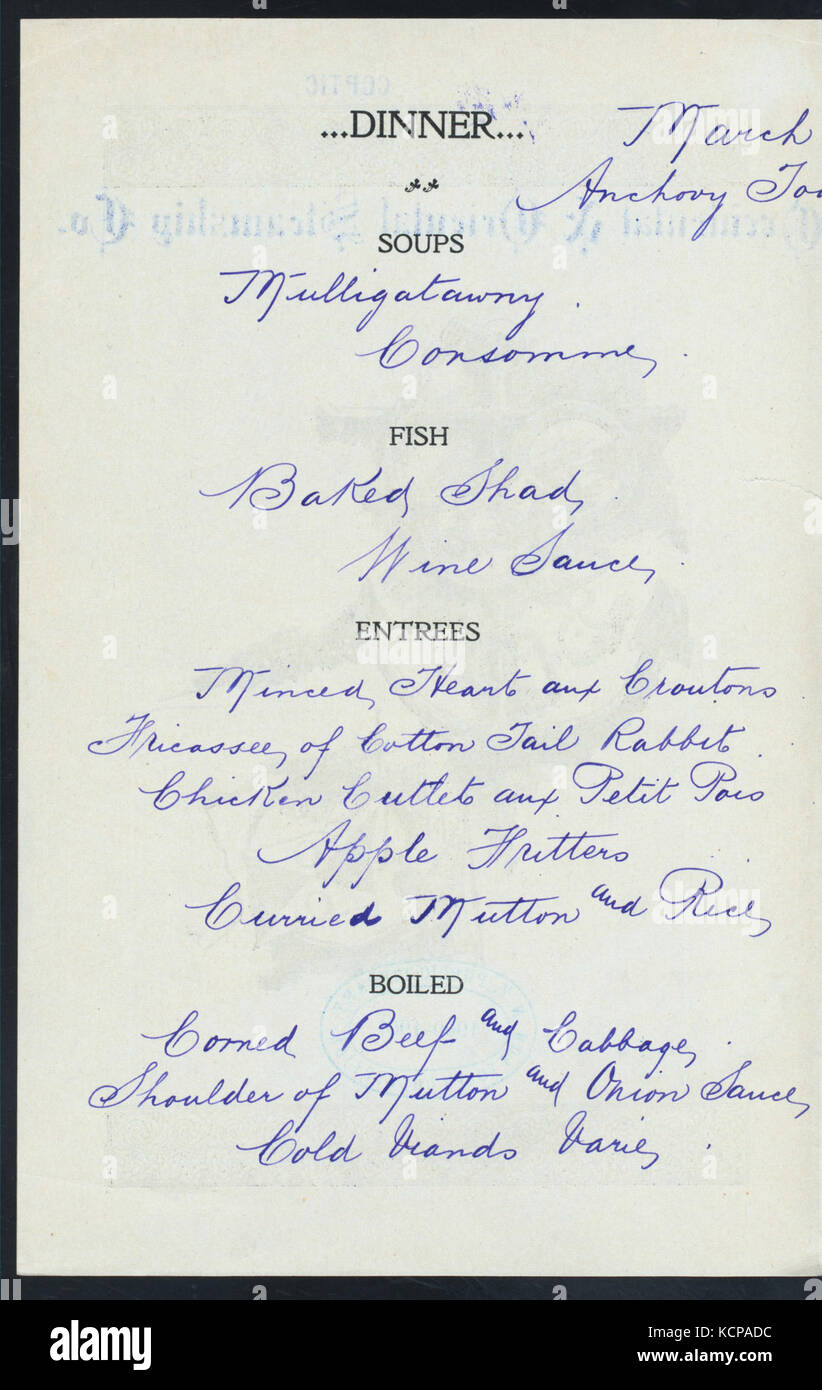 COPTIC
...DINNER...
March
Anchovy Toa
Occidental & Oriental Steamship Co.
SOUPS
Mulligatawny.
Consomme.
FISH
Baked Shad.
Wine Sauce.
ENTREES
Minced Heart aux Croutons
Fricassee of Cotton Tail Rabbit.
Chicken Cutlets aux Petit Pois
Apple Fritters
Curried Mutton and Rice
BOILED
Corned Beef and Cabbage.
Shoulder of Mutton and Onion Sauce
Cold Viands Varie.
alamy
Image ID: KCPADC
www.alamy.com